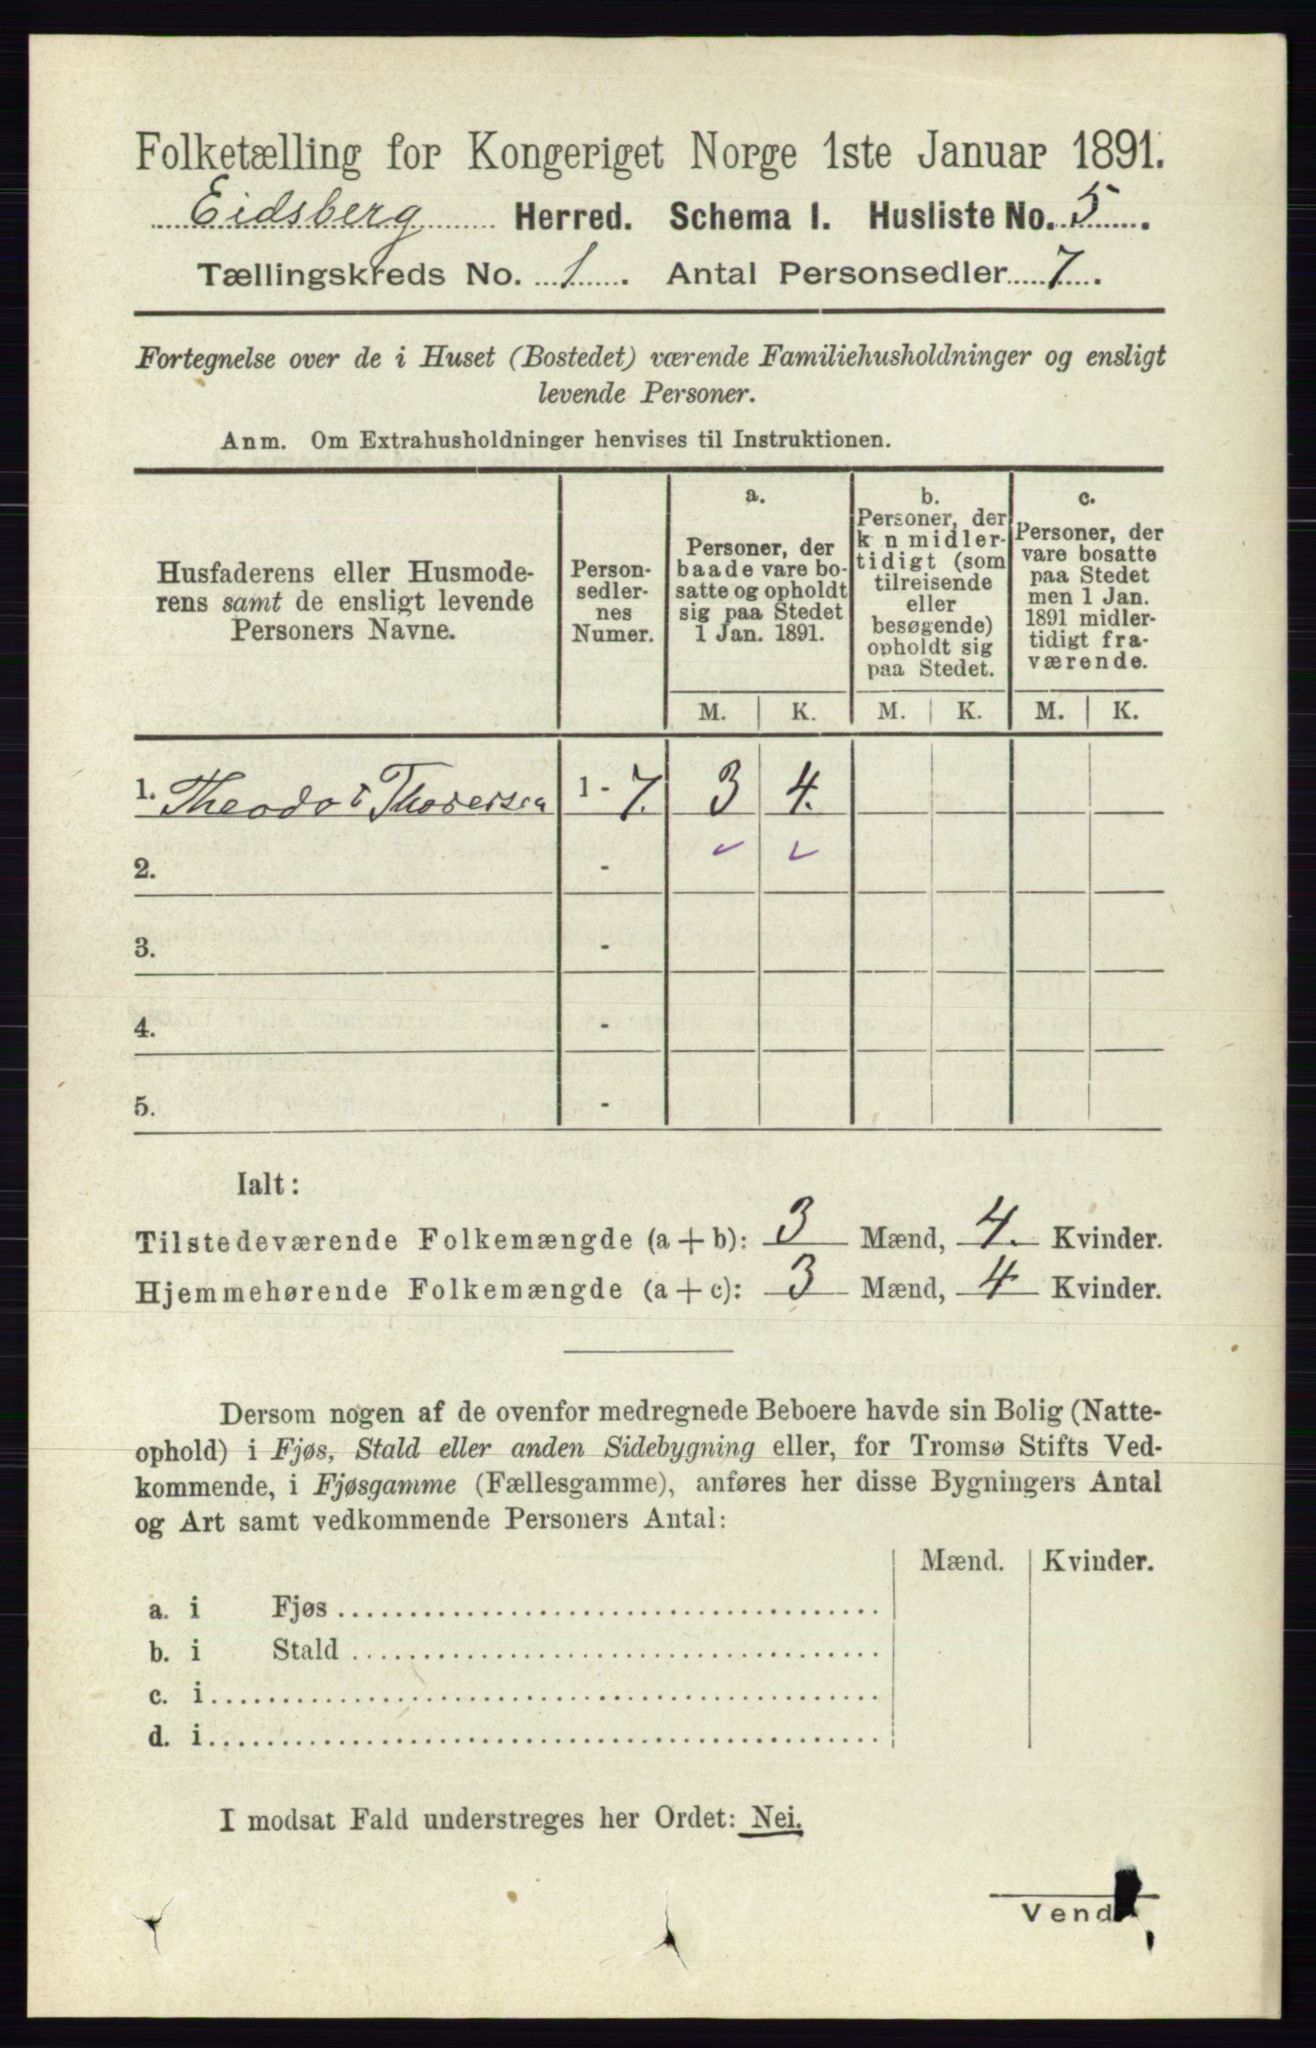 Folketælling for Kongeriget Norge 1ste Januar 1891.
Eidsberg Herred. Schema I. Husliste No. 5.
Tællingskreds No. 1. Antal Personsedler 7.
Fortegnelse over de i Huset (Bostedet) værende Familiehusholdninger og ensligt
levende Personer.
Anm. Om Extrahusholdninger henvises til Instruktionen.
Husfaderens eller Husmode-
rens samt de ensligt levende
Personers Navne.
Person-
sedler-
nes
Numer.
a.
Personer, der
baade vare bo-
satte og opholdt
sig paa Stedet
1 Jan. 1891.
b.
Personer, der
k n midler-
tidigt (som
tilreisende
eller
besøgende)
opholdt sig
paa Stedet.
c.
Personer, der
vare bosatte
paa Stedet
men 1 Jan.
1891 midler-
tidigt fra-
værende.
M. K. M. K. M. K.
1. Theodor Thoresen 1 - 7. 3 4.
2. -
3. -
4. -
5. -
Ialt:
Tilstedeværende Folkemængde (a + b): 3 Mænd, 4. Kvinder.
Hjemmehørende Folkemængde (a + c): 3 Mænd, 4 Kvinder.
Dersom nogen af de ovenfor medregnede Beboere havde sin Bolig (Natte-
ophold) i Fjøs, Stald eller anden Sidebygning eller, for Tromsø Stifts Ved-
kommende, i Fjøsgamme (Fællesgamme), anføres her disse Bygningers Antal
og Art samt vedkommende Personers Antal:
Mænd. Kvinder.
a. i Fjøs
b. i Stald
c. i
d. i
I modsat Fald understreges her Ordet: Nei.
Vend